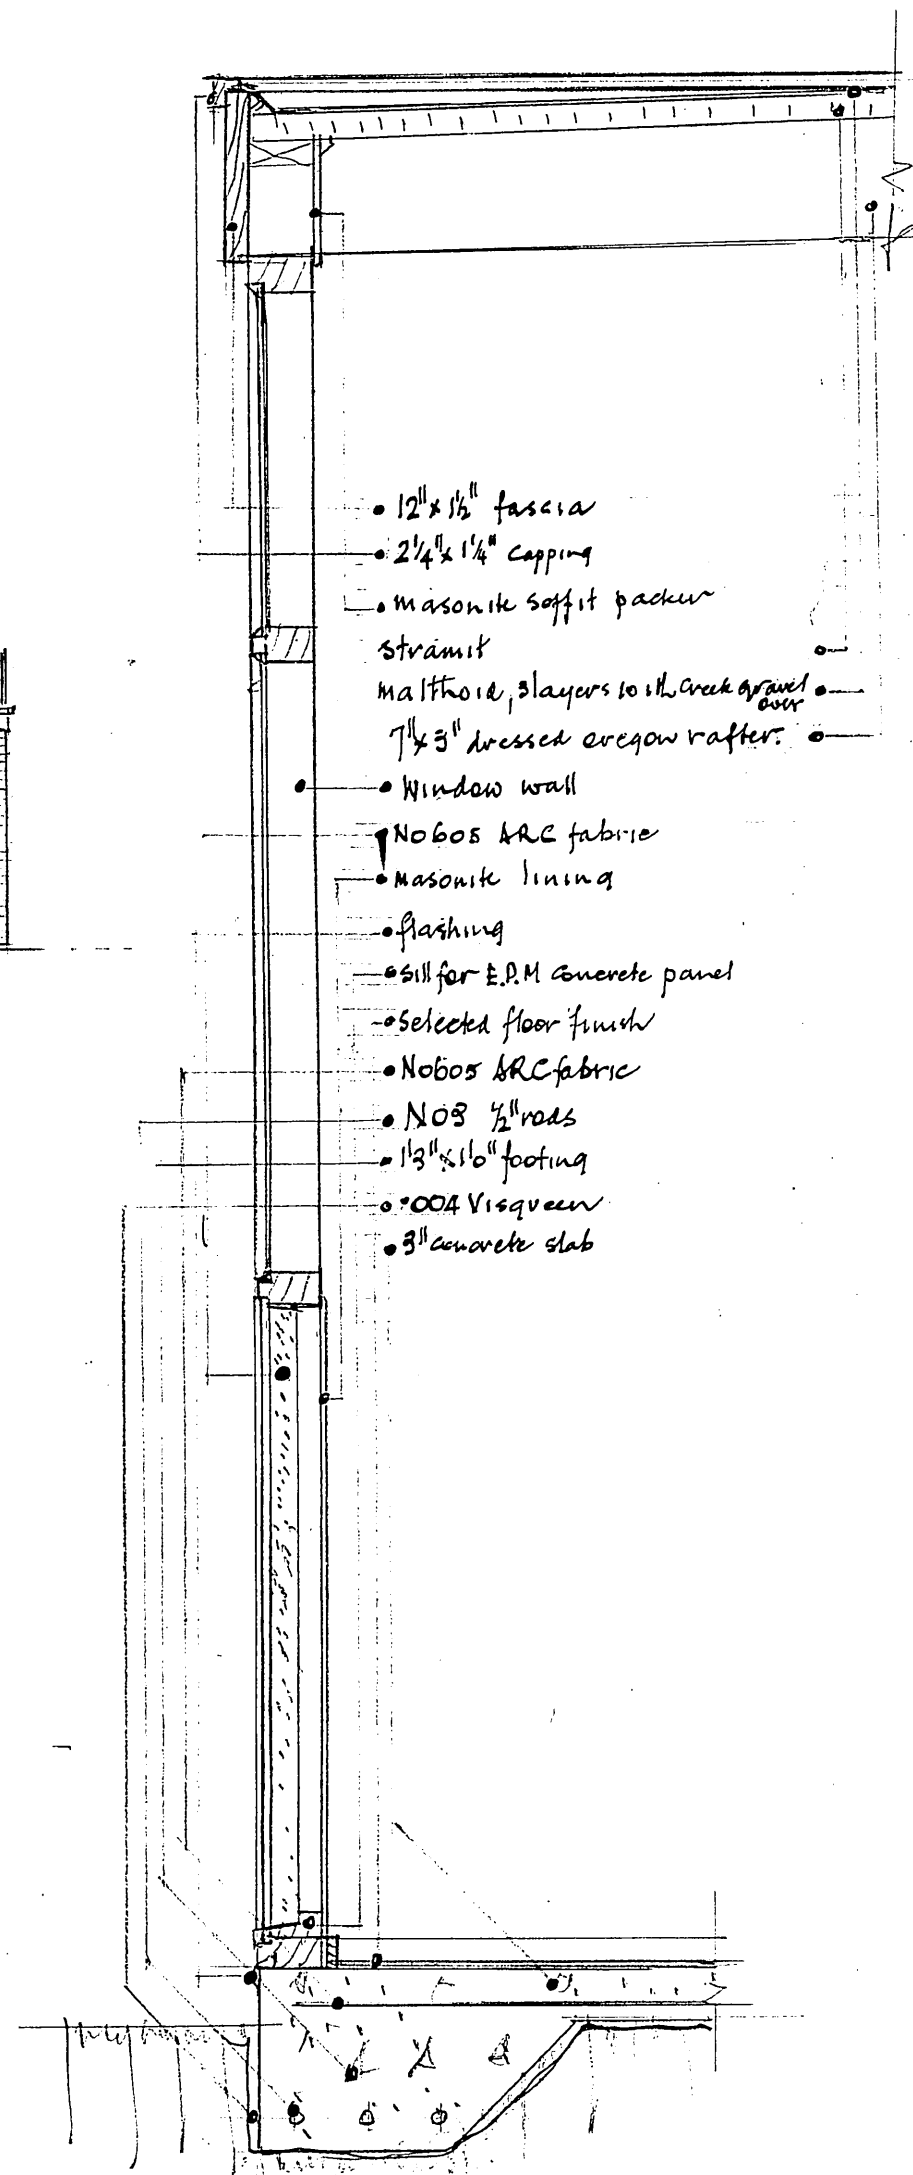 12"x 1½" fascia
2¼"x 1¼" capping
masonite soffit packer
stramit
malthoid, 3layers with creek gravel
over
7"x 3" dressed oregon rafter.
Window wall
No605 ARC fabric
masonite lining
flashing
sill for E.P.M concrete panel
Selected floor finish
No605 ARC fabric
NO3 ½" rods
1'3"x1'0" footing
·004 Visqueen
3" concrete slab